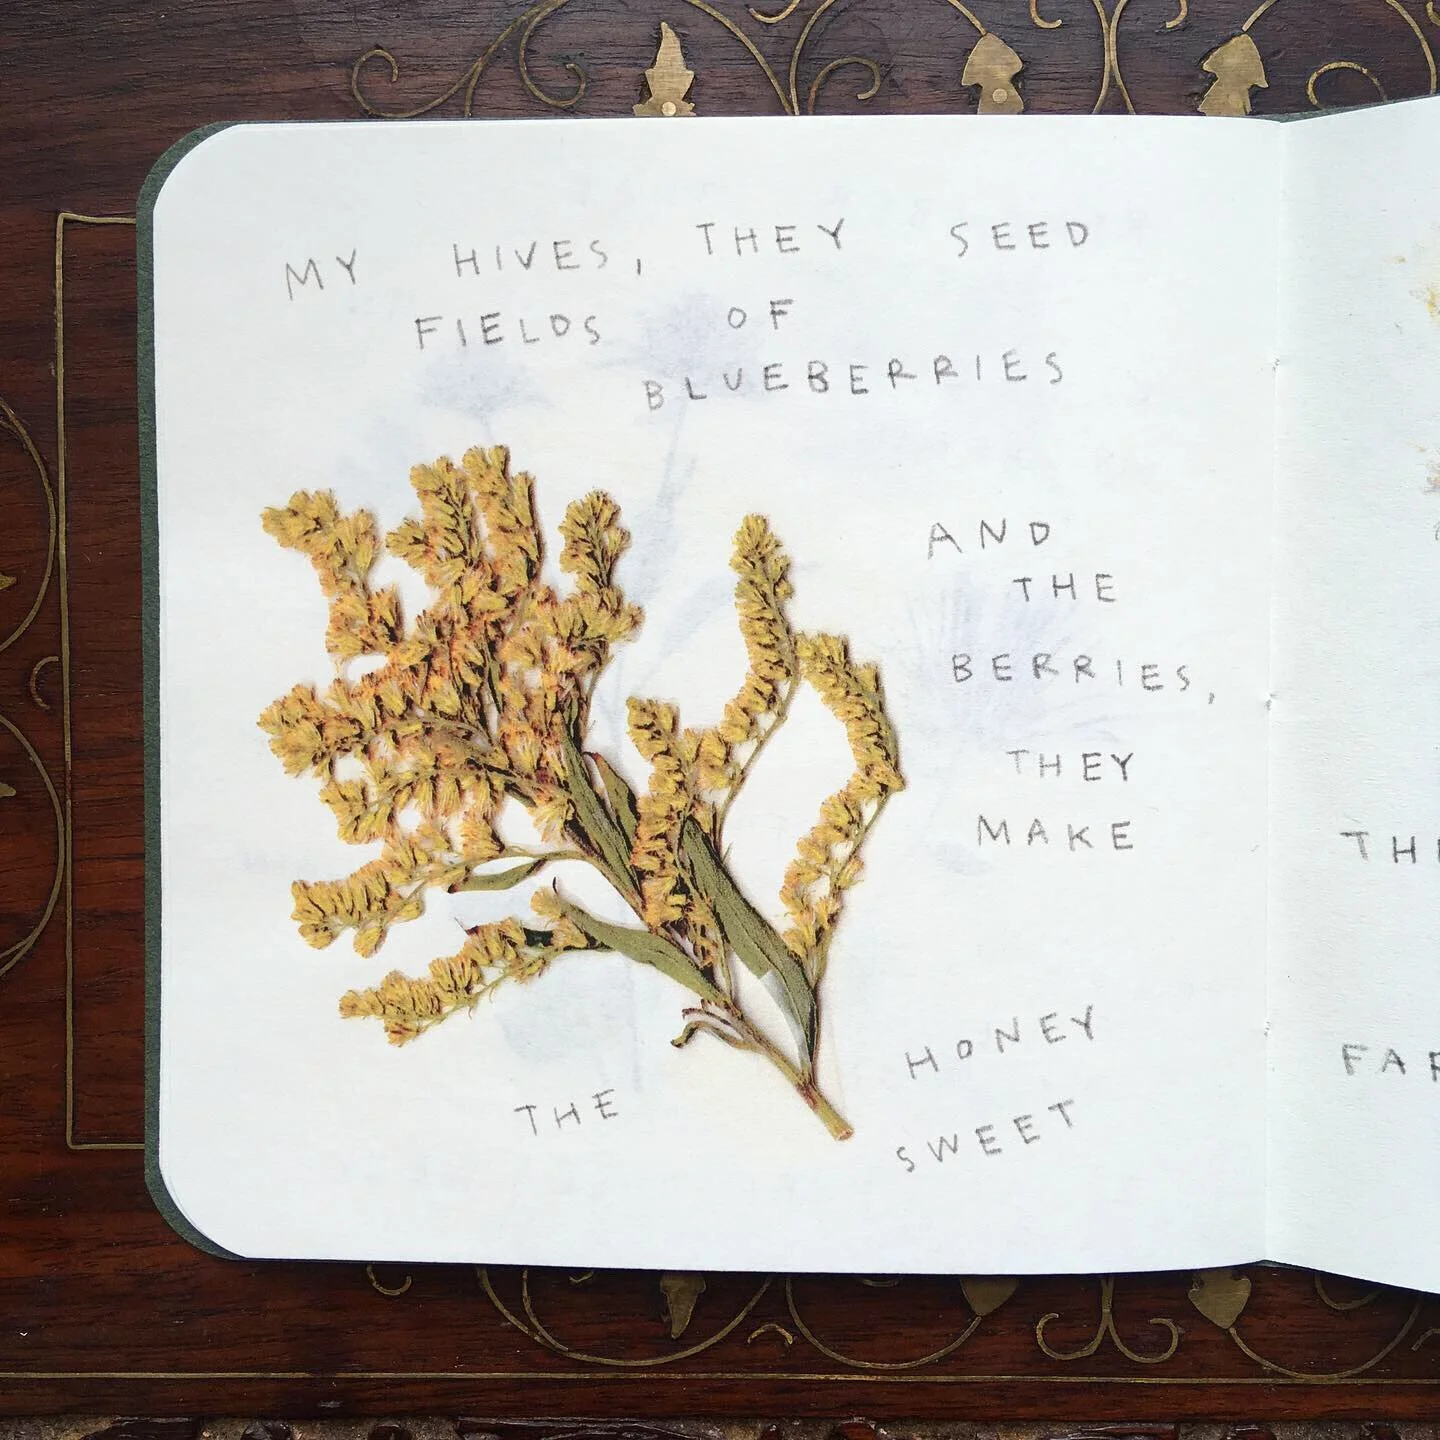 MY HIVES, THEY SEED
FIELDS OF
BLUEBERRIES
AND
THE
BERRIES,
THEY
MAKE
THE HONEY
SWEET